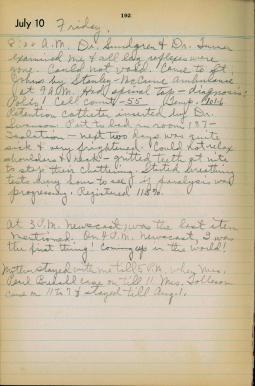 192
July 10 Friday,
8:00 A.M. Dr. Sundgren & Dr. Turner
examined me & all leg reflexes were
gone. Could not void. Came to St.
Johns by Stanley-McCune Ambulance
at 9 A.M. Had spinal tap - diagnosis:
Polio! Cell count - 55 (Temp. 101.6
Retention catheter inserted by Dr.
Put to bed in room 127 -
isolation - next two days was quite
sick & very frightened. Could not relax
shoulders & neck - gritted teeth at nite
to stop them chattering. Started breathing
tests every hour to see if paralysis was
progressing. Registered 118%.
At 3 P.M. newscast, was the last item
mentioned. On 4 P.M. Newscast, I was
the first thing! Coming up in the world!
Mother stayed with me till 5 P.M. when Mrs.
Pearl came on till 11. Mrs. Tolleson
came on 11 to 7 & stayed till Aug. 1.